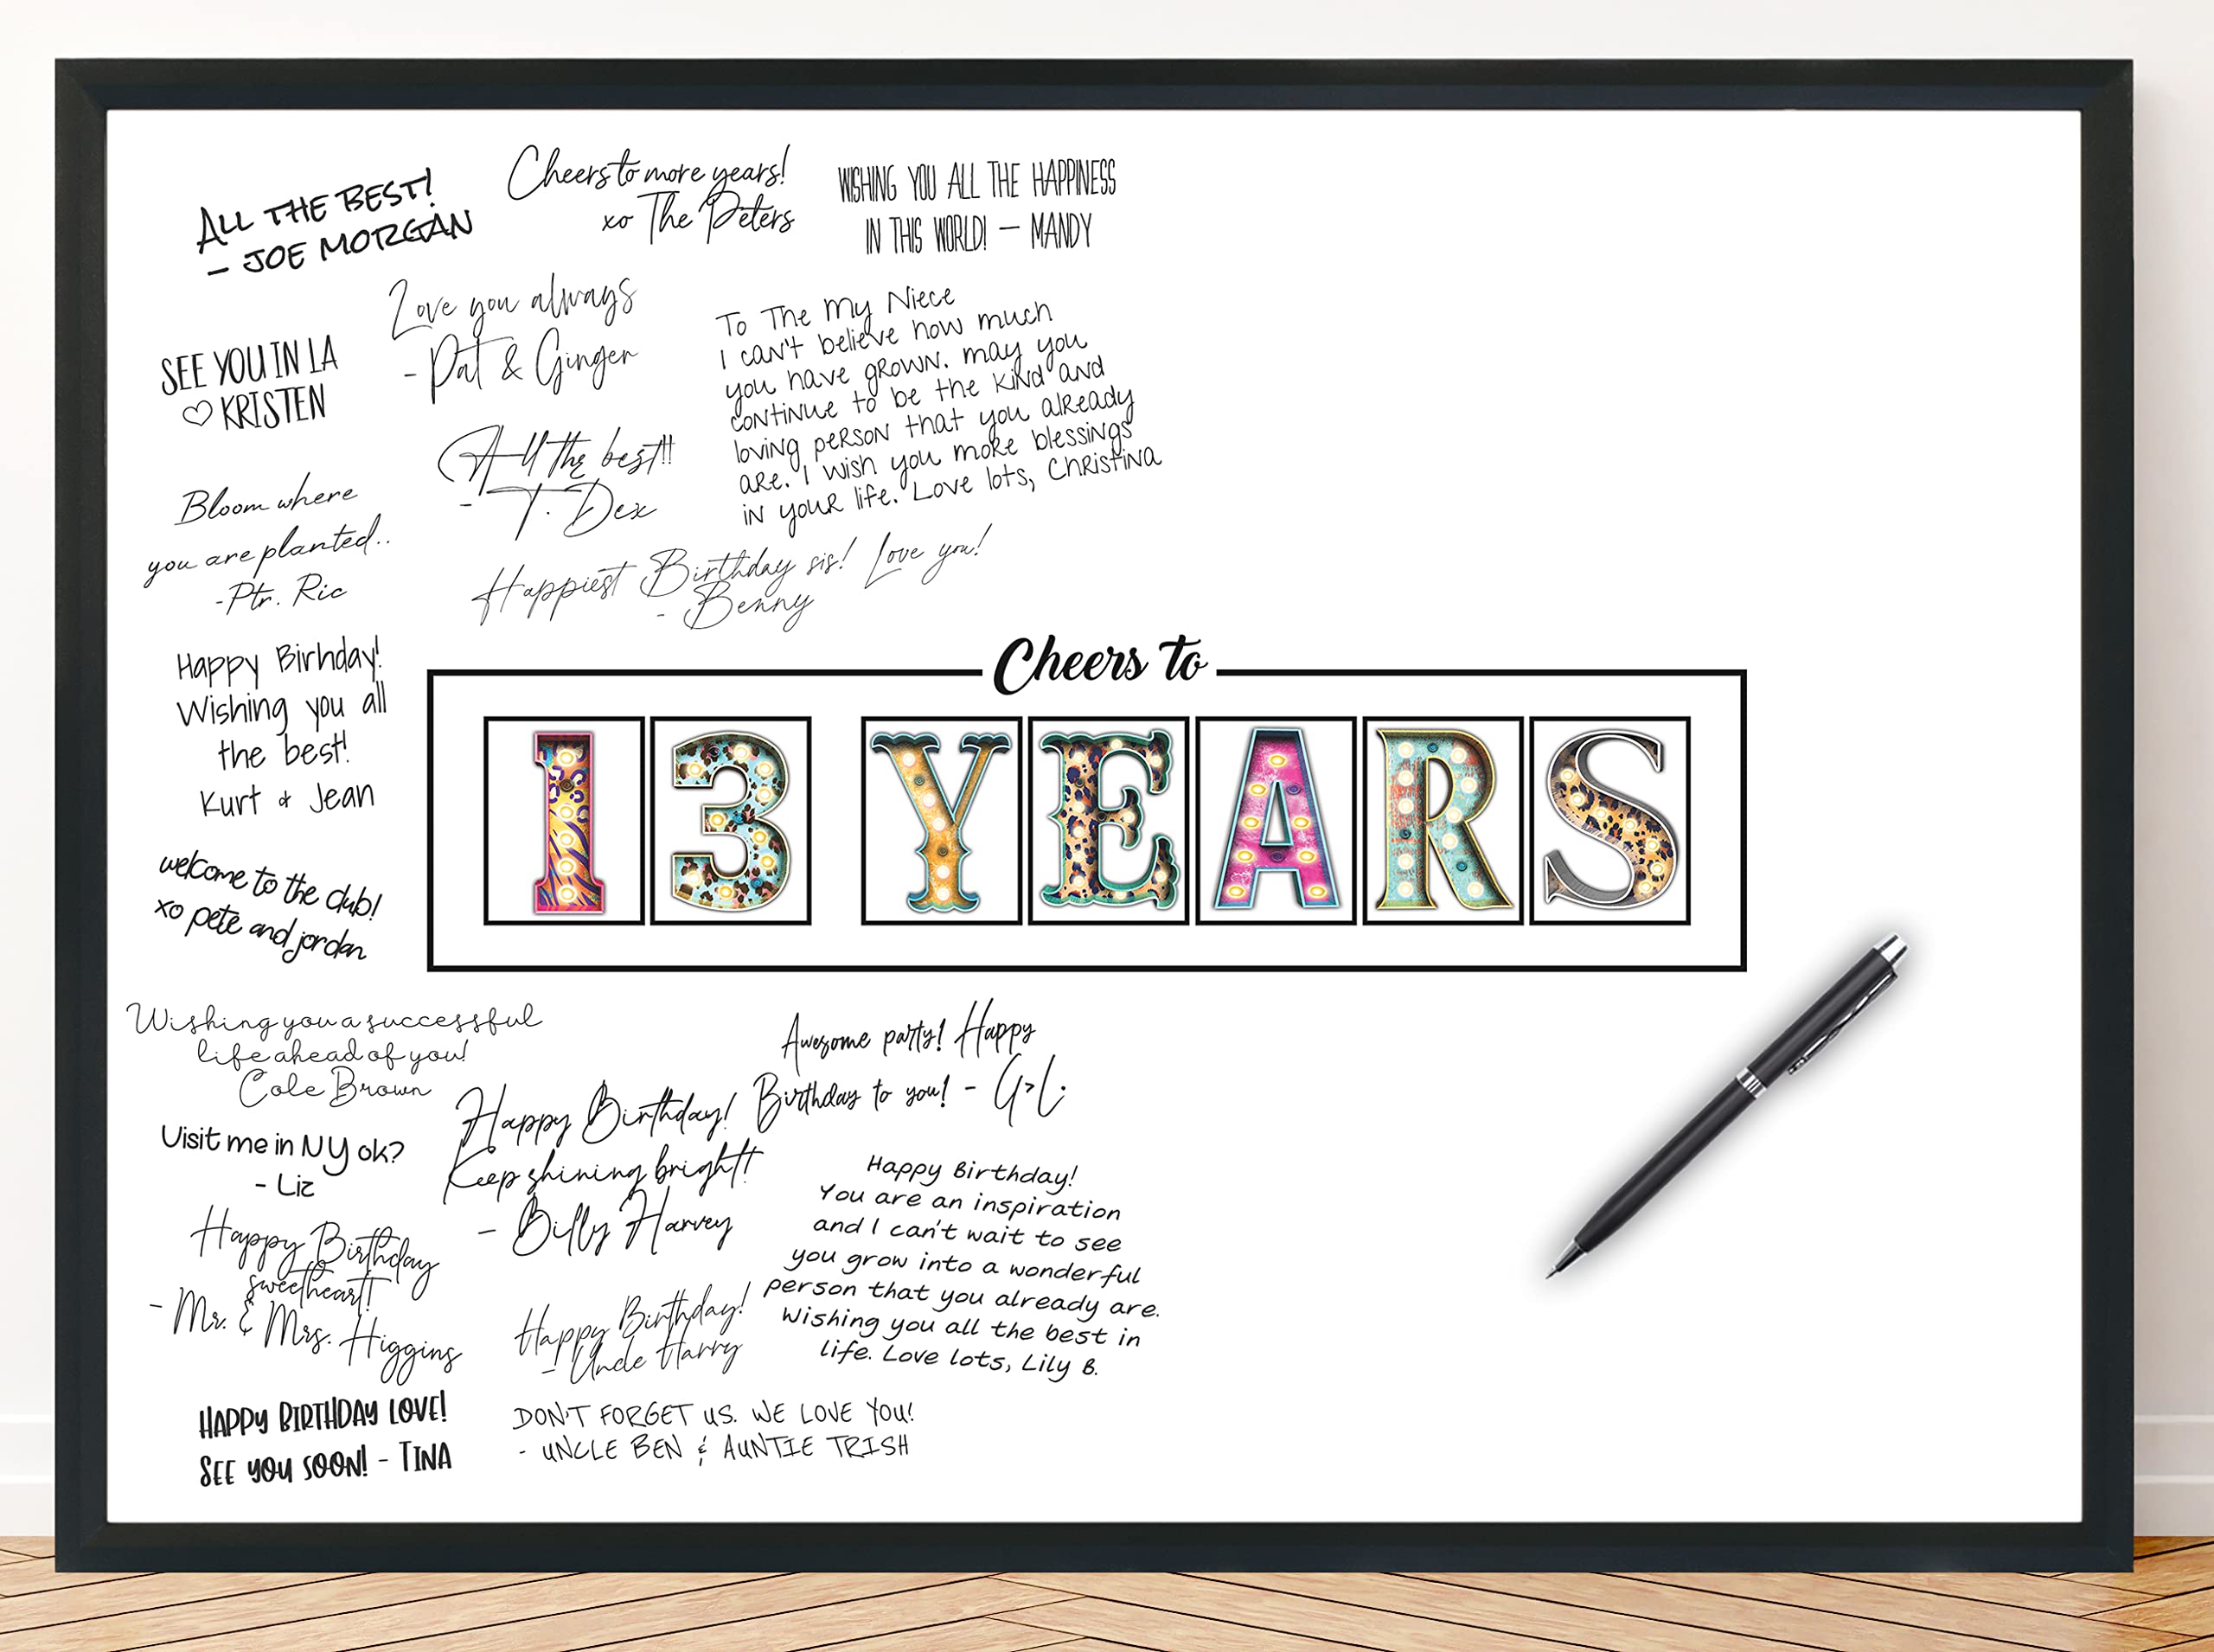 ALL THE BEST!
– JOE MORGAN
Cheers to more years!
xo The Peters
WISHING YOU ALL THE HAPPINESS
IN THIS WORLD! – MANDY
Love you always
- Pat & Ginger
SEE YOU IN LA
♡ KRISTEN
To The My Niece
I can't believe how much
you have grown. may you
continue to be the kind and
loving person that you already
are. I wish you more blessings
in your life. Love lots, Christina
All the best!!
- T. Dex
Bloom where
you are planted..
-Ptr. Ric
Happiest Birthday sis! Love you!
- Benny
Happy Birhday!
Wishing you all
the best!
Kurt & Jean
Cheers to
13 YEARS
welcome to the club!
xo pete and jordan
Wishing you a successful
life ahead of you!
Cole Brown
Awesome party! Happy
Birthday to you! - G>L.
Happy Birthday!
Keep shining bright!!
- Billy Harvey
Visit me in NY ok?
- Liz
Happy Birthday!
You are an inspiration
and I can't wait to see
you grow into a wonderful
person that you already are.
Wishing you all the best in
life. Love lots, Lily B.
Happy Birthday
sweetheart!
- Mr. & Mrs. Higgins
Happy Birthday!
- Uncle Harry
HAPPY BIRTHDAY LOVE!
SEE YOU SOON! - TINA
DON'T FORGET US. WE LOVE YOU!
- UNCLE BEN & AUNTIE TRISH